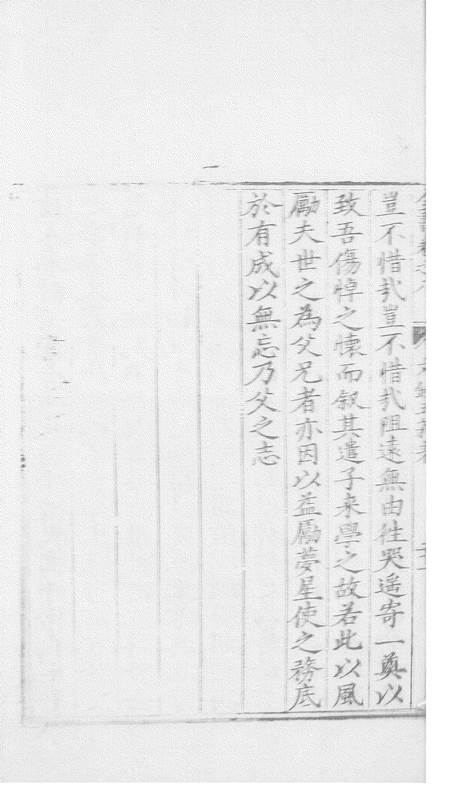 豈不惜㢤豈不惜㢤阻遠無由徃哭遥寄一奠以
致吾傷悼之懷而叙其遣子来學之故若此以風
勵夫世之為父兄者亦因以益勵夢星使之務底
於有成以無忘乃父之志